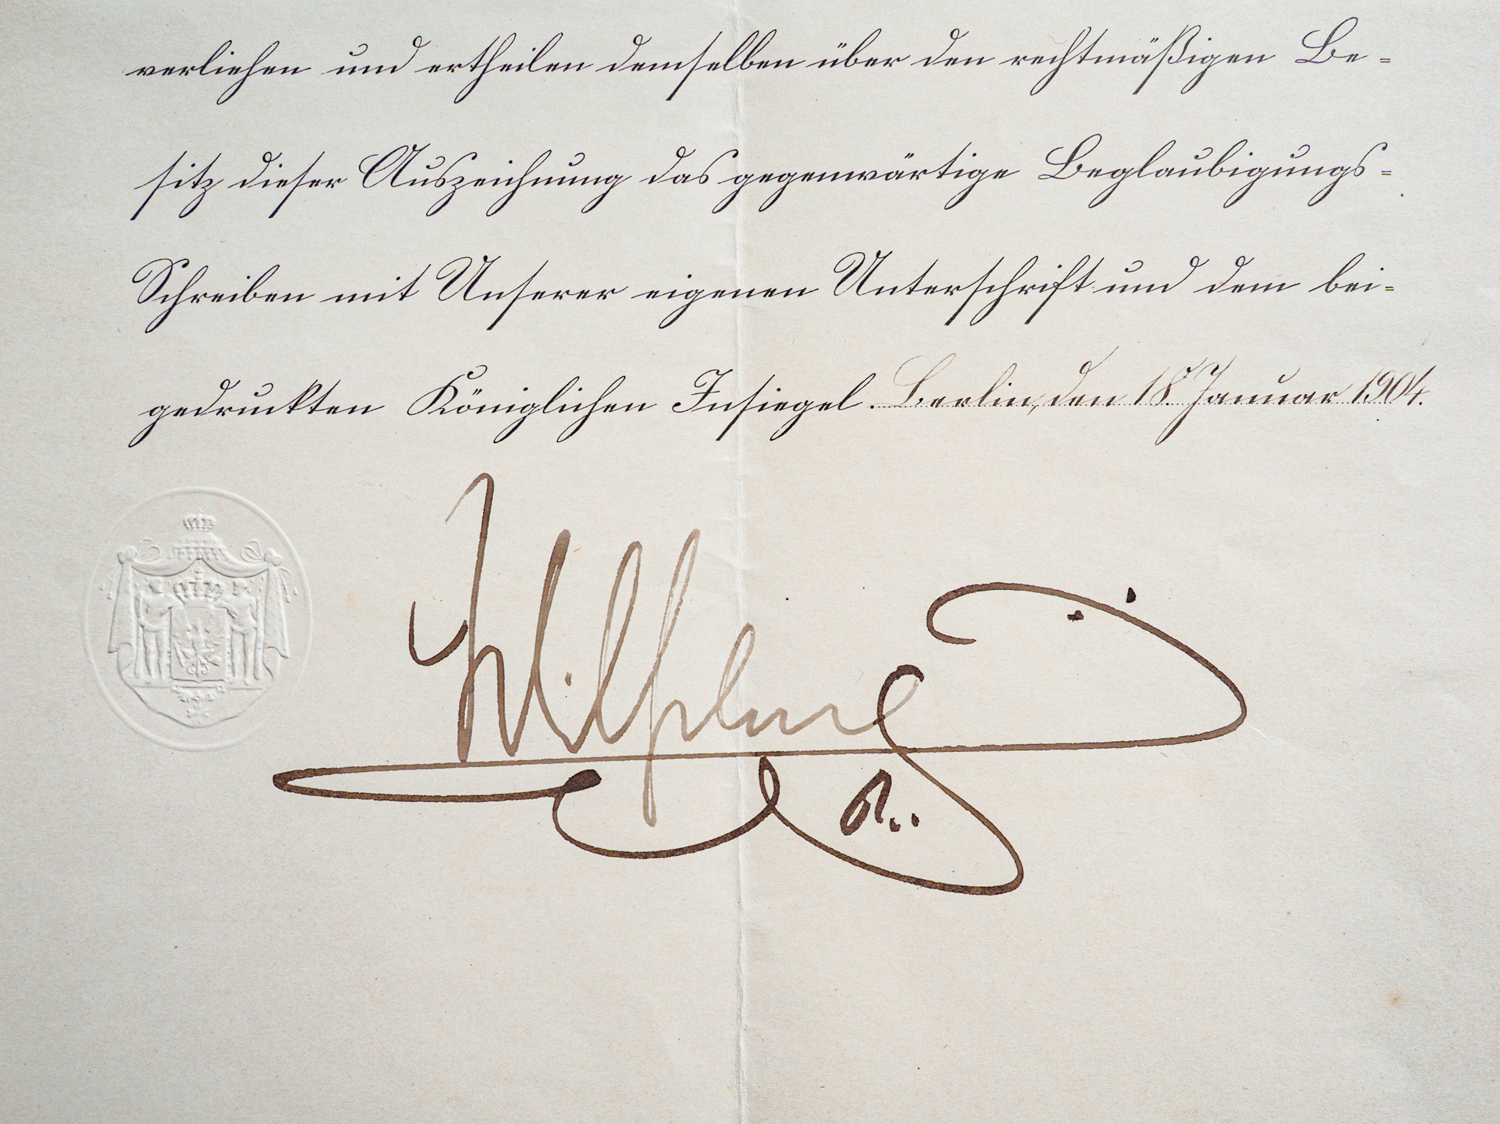 verliehen und ertheilen demselben über den rechtmäßigen Be=
sitz dieser Auszeichnung das gegenwärtige Beglaubigungs=
Schreiben mit Unserer eigenen Unterschrift und dem bei=
gedruckten Königlichen Insiegel. Berlin, den 18. Januar 1904.
Wilhelm
R.